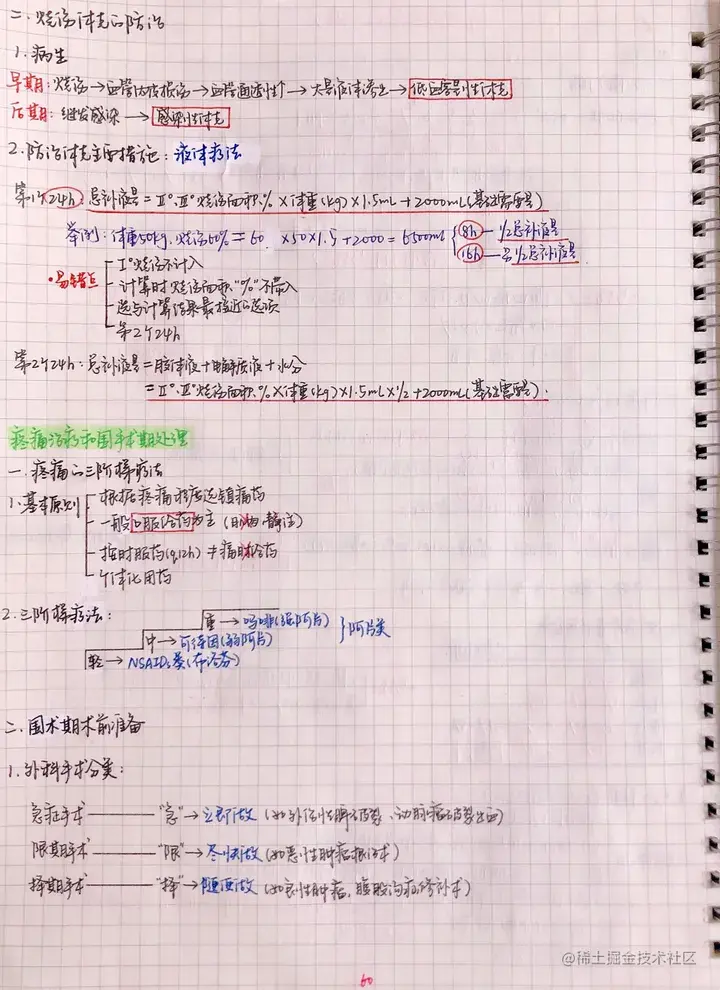 二.烧伤休克的防治
1.病生
早期:烧伤→血管内皮损伤→血管通透性↑→大量液体渗出→低血容量性休克
后期:继发感染→感染性休克
2.防治休克主要措施:液体疗法
第1个24h:总补液量=Ⅱ°.Ⅲ°烧伤面积%×体重(kg)×1.5mL+2000mL(基础需要量)
举例:体重50kg.烧伤60%=60×50×1.5+2000=6500ml
8h—1/2总补液量
16h—另1/2总补液量
•易错点
Ⅰ°烧伤不计入
计算时烧伤面积"%"不带入
选与计算结果最接近的选项
第2个24h
第2个24h:总补液量=胶体液+电解质液+水分
=Ⅱ°.Ⅲ°烧伤面积%×体重(kg)×1.5mL×1/2+2000mL(基础需要量).
疼痛治疗和围手术期处理
一.疼痛的三阶梯疗法
1.基本原则
根据疼痛程度选镇痛药
一般口服给药为主(肌 静注)
按时服药(q12h)≠痛时给药
个体化用药
2.三阶梯疗法:
重→吗啡(强阿片)
中→可待因(弱阿片)
}阿片类
轻→NSAIDs类(布洛芬)
二.围术期术前准备
1.外科手术分类:
急症手术——"急"→立即做(如外伤性脾破裂、动脉瘤破裂出血)
限期手术——"限"→尽快做(如恶性肿瘤根治术)
择期手术——"择"→随便做(如良性肿瘤,腹股沟疝修补术)
60
@稀土掘金技术社区